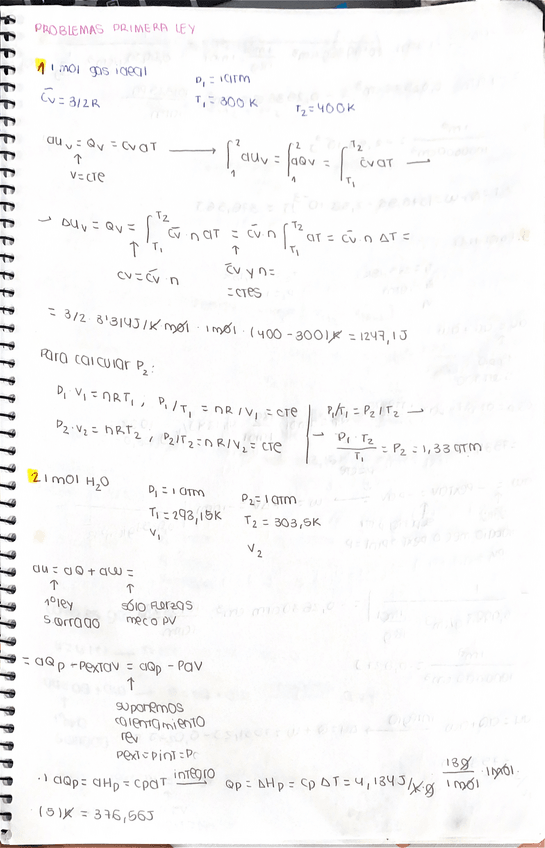 PROBLEMAS PRIMERA LEY
1 1 mol gas ideal P₁ = 1 atm
C̄v = 3/2 R T₁ = 300 K T₂ = 400 K
dUv = Qv = Cv dT ⟶ ∫₁² dUv = ∫₁² dQv = ∫_T₁^T₂ Cv dT →
↑
V=CTE
→ ΔUv = Qv = ∫_T₁^T₂ C̄v n dT = C̄v n ∫_T₁^T₂ dT = C̄v n ΔT =
↑ ↑
Cv = C̄v · n C̄v y n =
= CTES
= 3/2 · 8'314 J/K mol · 1 mol · (400 - 300) K = 1247,1 J
Para calcular P₂:
P₁ V₁ = nRT₁, P₁/T₁ = nR/V₁ = CTE | P₁/T₁ = P₂/T₂ →
P₂·V₂ = nRT₂, P₂/T₂ = nR/V₂ = CTE | → P₁·T₂/T₁ = P₂ = 1,33 atm
2 1 mol H₂O P₁ = 1 atm P₂ = 1 atm
T₁ = 293,15K T₂ = 303,5K
V₁ V₂
dU = dQ + dW =
↑ ↑
1º ley sólo fuerzas
S cerrado mec o PV
= dQp - Pext dV = dQp - PdV
↑
suponemos
calentamiento
rev
Pext = Pint = P
·) dQp = dHp = Cp dT integro ⟶ Qp = ΔHp = Cp ΔT = 4,184 J/K·g · 18g/1mol · 1mol ·
· (5)K = 376,56J